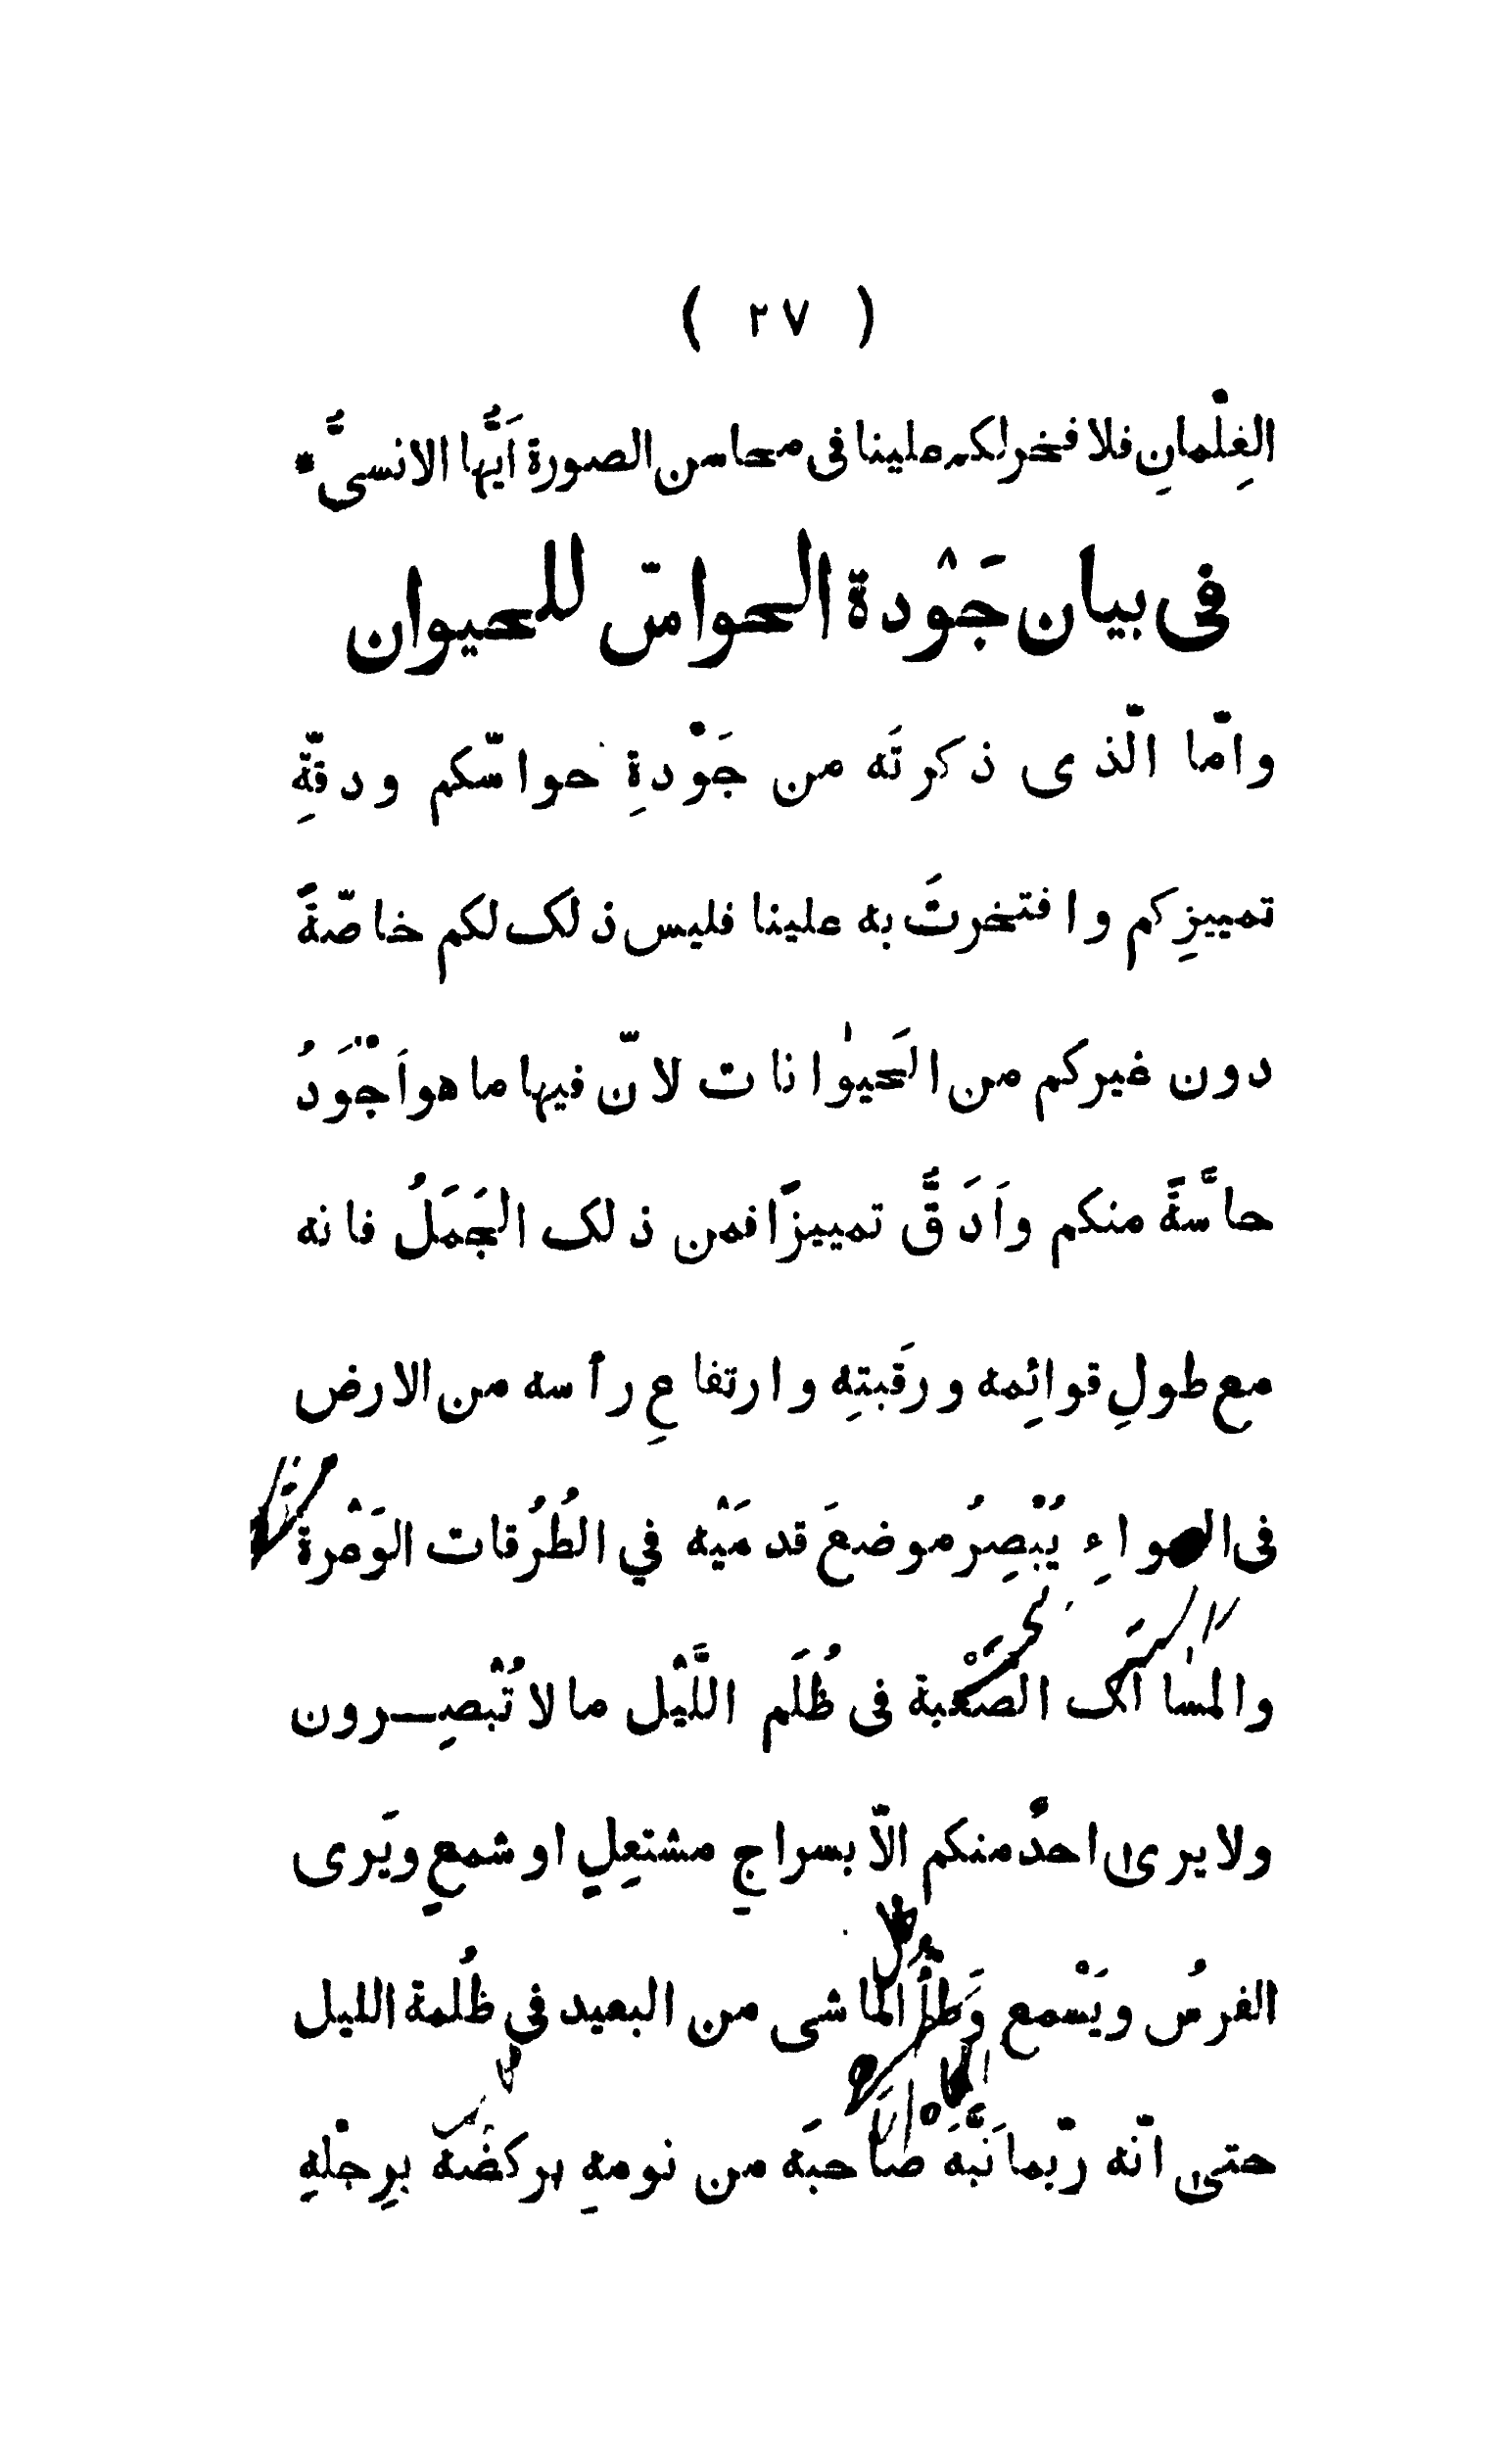 ( ٢٧ )
الغِلْمانِ فلا فخر لكم علينا فى محاسن الصورة اَيُّها الانسىُّ *
فى بيان جَوْدة الحواسّ للحيوان
وامّا الّذى ذكرتَه من جَوْدةِ حواسّكم ودقّةِ
تمييزِكم وافتخرتَ به علينا فليس ذلك لكم خاصّةً
دون غيركم من الحَيوٰانات لانّ فيها ما هو اَجْوَدُ
حاسَّةً منكم واَدَقُّ تمييزًا فمن ذلك الجَمَلُ فانه
مع طولِ قوائِمه ورَقبتِه وارتفاعِ رأسه من الارض
فى الهواءِ يُبْصِرُ موضعَ قدمَيْه في الطُرُقات الوَعْرة
والمسٰالك الصَّعْبة فى ظُلَم اللَّيْل ما لا تُبْصِرون
ولا يرىٰ احدٌ منكم الاّ بسراجٍ مشتعِلٍ او شمعٍ ويَرى
الفرسُ ويَسْمع وَطأَ الماشى من البعيد في ظُلمة الليل
حتىٰ انّه ربّما نَبَّهَ صاحبَه من نومهِ بركضَه برِجْلهِ